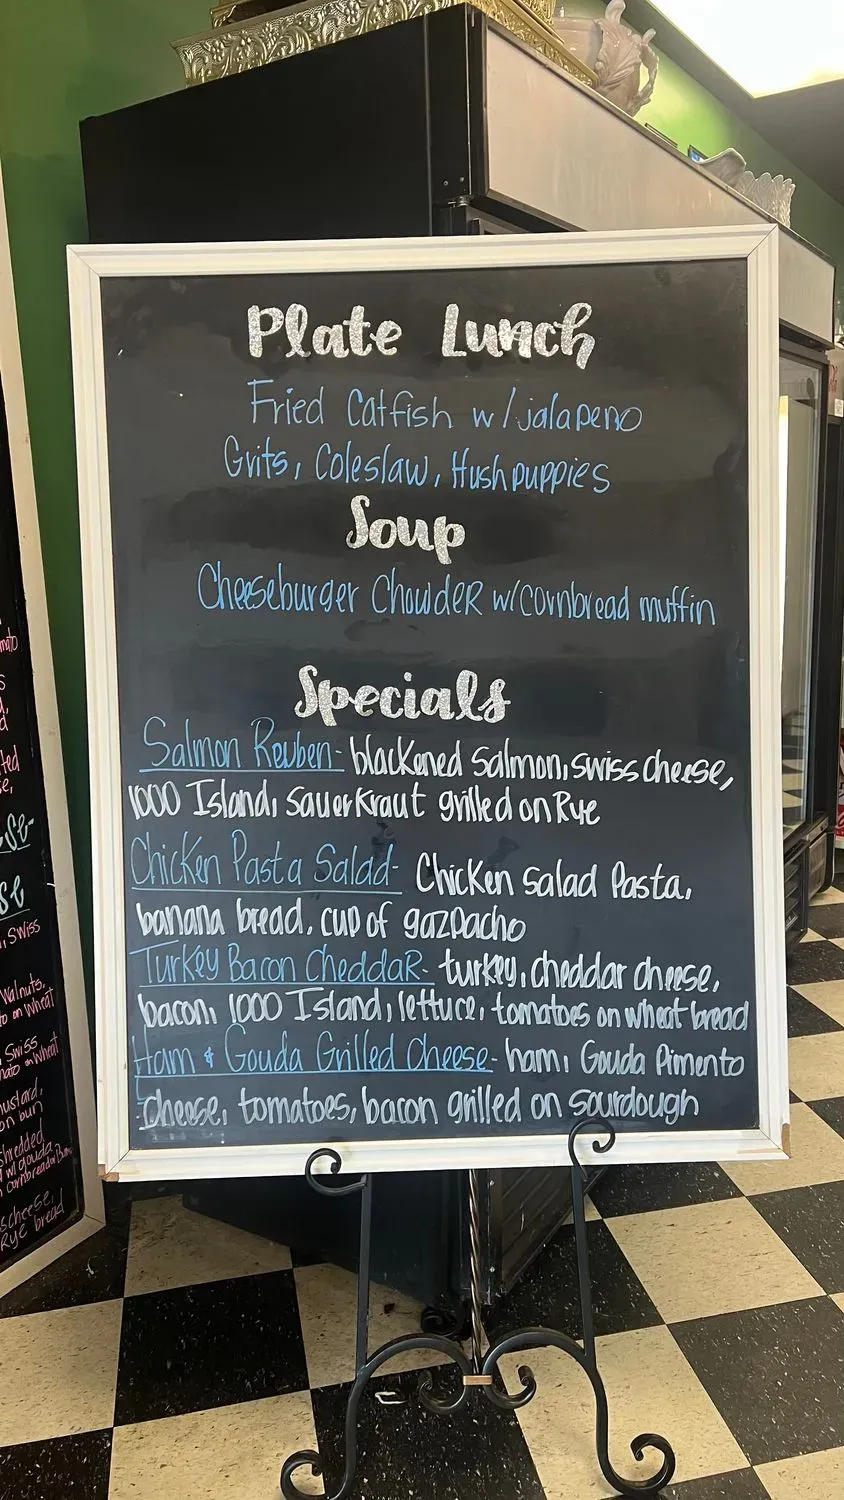 Plate Lunch
Fried Catfish w/jalapeno
Grits, Coleslaw, Hushpuppies
Soup
Cheeseburger Chowder w/cornbread muffin
Specials
Salmon Reuben- blackened salmon, swiss cheese,
1000 Island, sauerkraut grilled on Rye
Chicken Pasta Salad- Chicken salad Pasta,
banana bread, cup of gazpacho
Turkey Bacon Cheddar- turkey, cheddar cheese,
bacon, 1000 Island, lettuce, tomatoes on wheat bread
Ham & Gouda Grilled Cheese- ham, Gouda Pimento
cheese, tomatoes, bacon grilled on sourdough
, Swiss
Walnuts,
to on Wheat
Swiss
on bun
w/ gouda
Rye bread